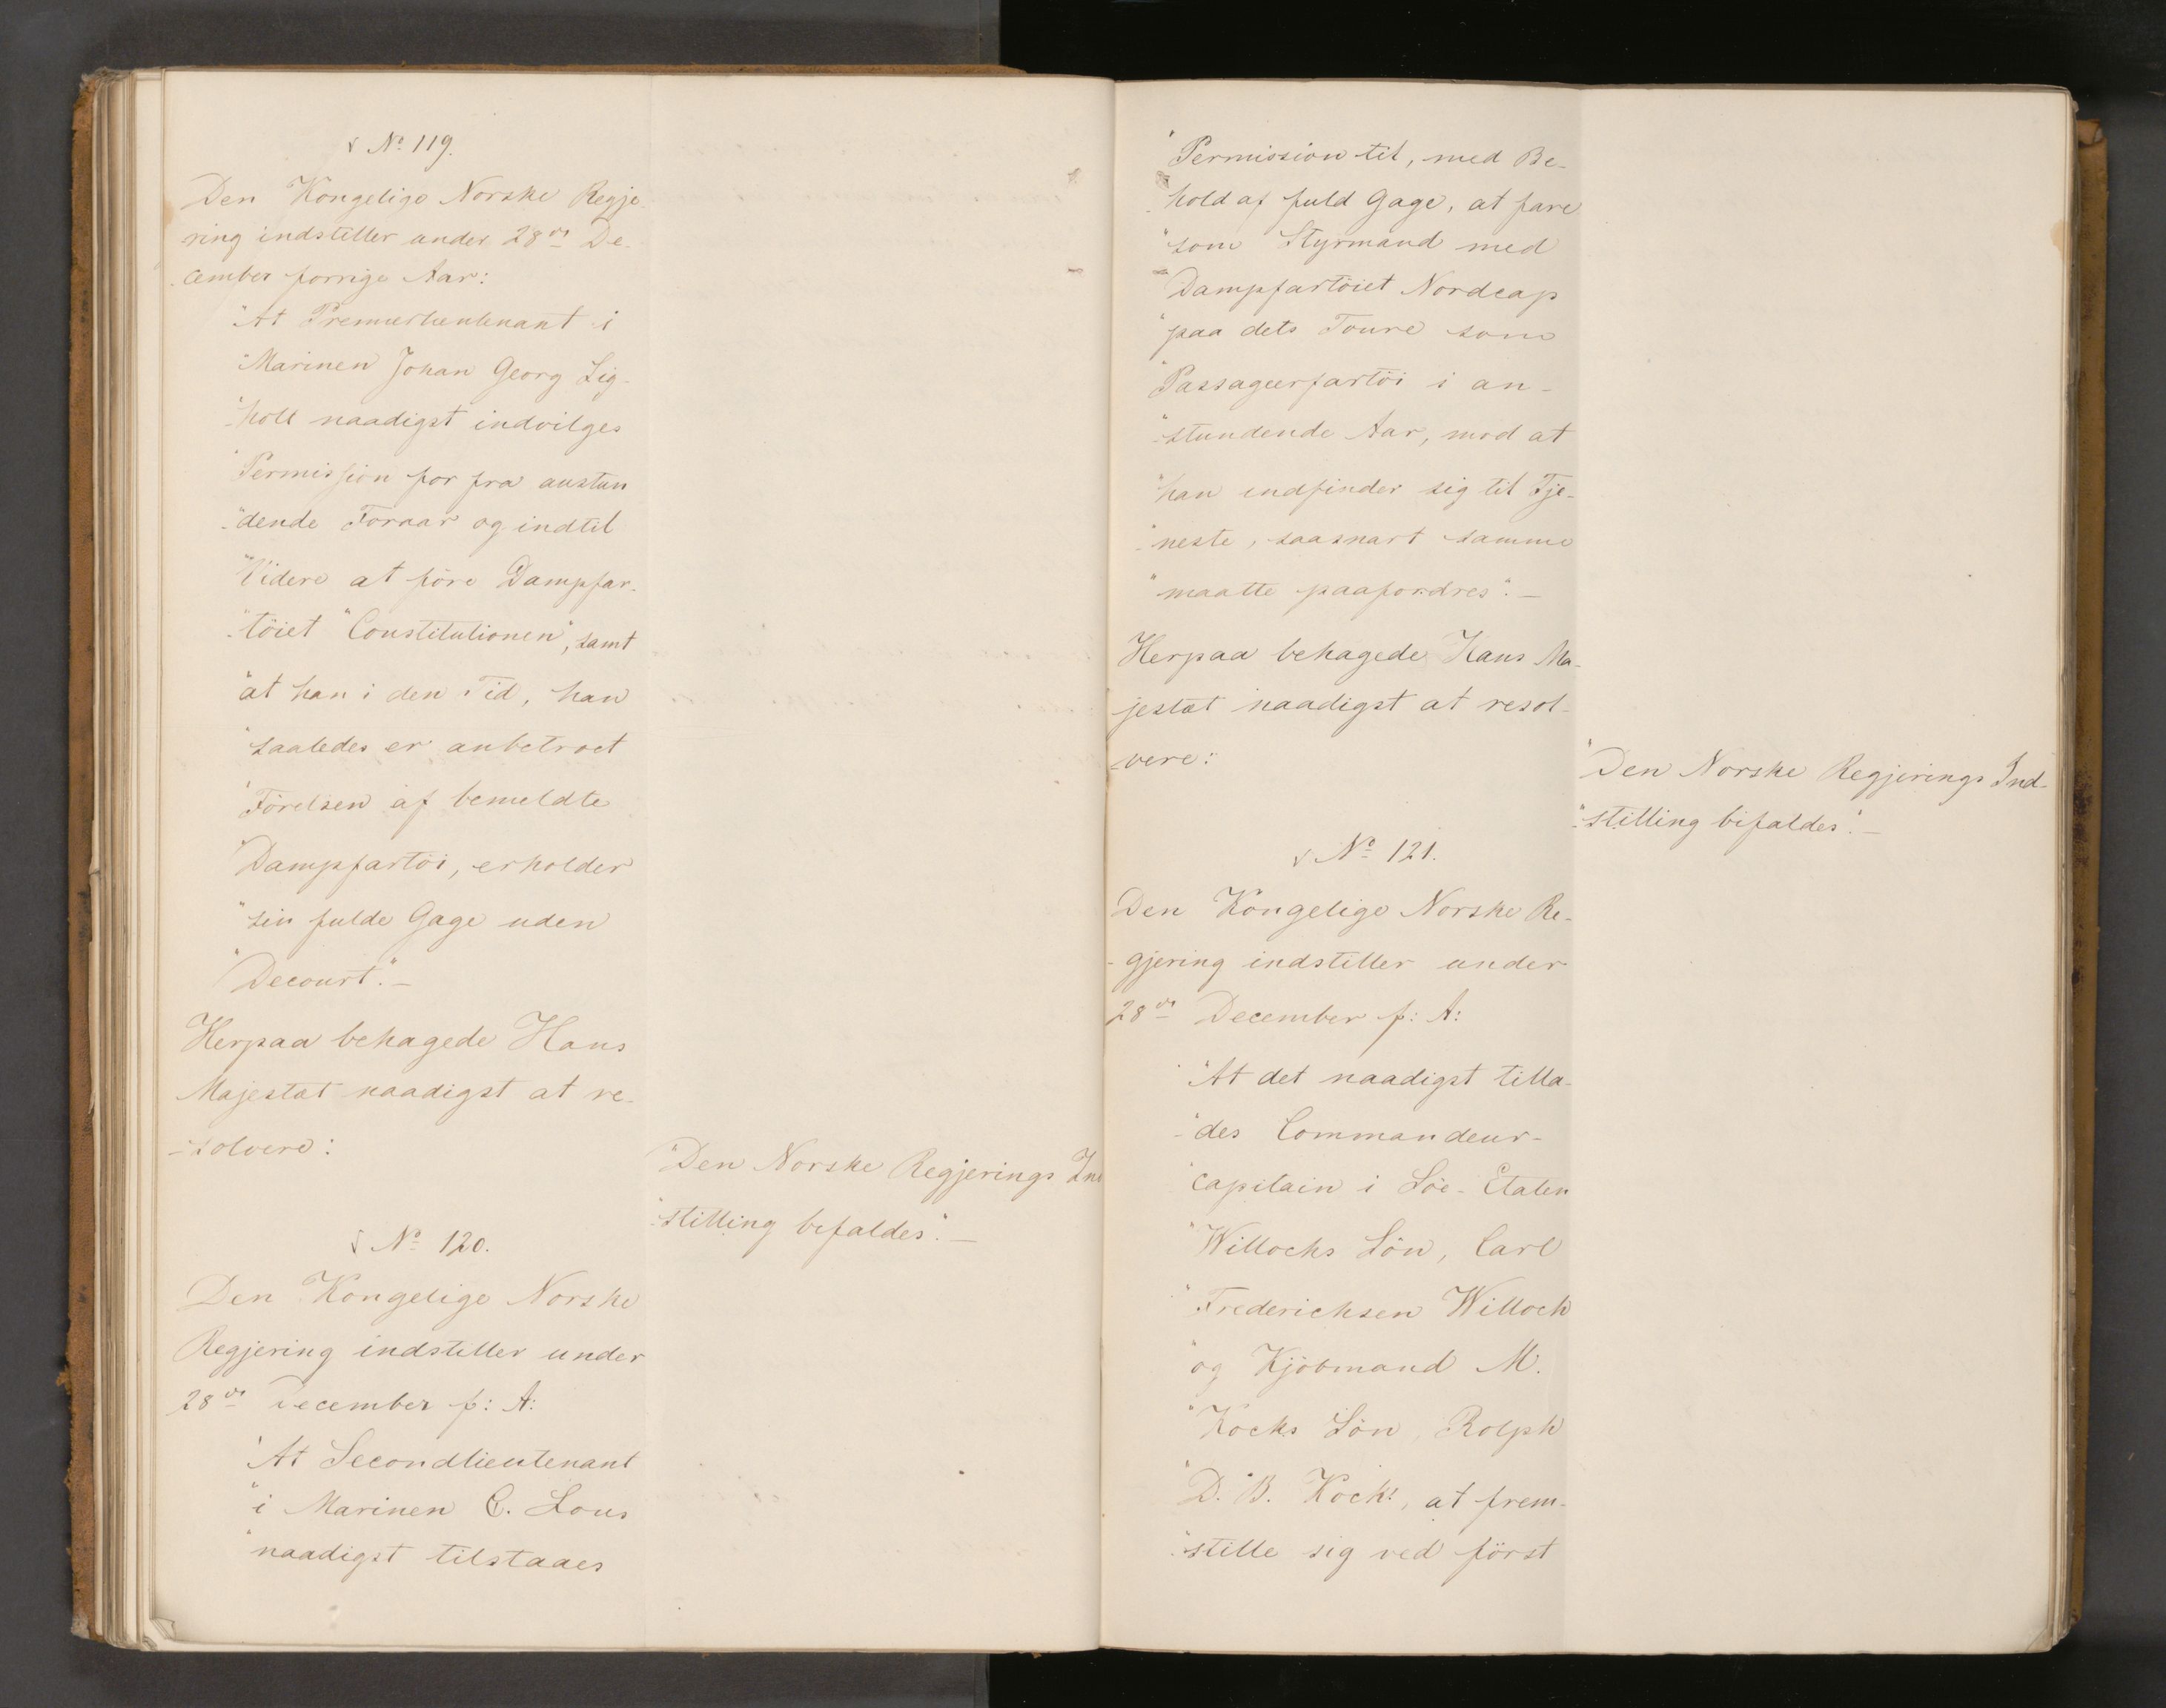 № 119.
Den Kongelige Norske Regje-
ring indstiller under 28de De-
cember forrige Aar:
"At Premierlieutenant i
"Marinen Johan Georg Lig-
"holl naadigst indvilges
"Permission for fra anstun
-"dende Foraar og indtil
"Videre at före Dampfar-
-"töiet "Constitutionen", samt
"at han i den Tid, han
"saaledes er anbetroet
"Förelsen af bemeldte
"Dampfartöi, erholder
"sin fulde Gage uden
"Decourt."-
Herpaa behagede Hans
Majestæt naadigst at re-
-solvere:
"Den Norske Regjerings Ind
-"stilling bifaldes".-
№ 120.
Den Kongelige Norske
Regjering indstiller under
28de December f: A:
"At Secondlieutenant
"i Marinen C. Lous
"naadigst tilstaaes
"Permission til, med Be-
-"hold af fuld Gage, at fare
"som Styrmand med
"Dampfartöiet Nordcap
"paa dets Toure som
"Passageerfartöi i an-
-"stundende Aar, mod at
"han indfinder sig til Tje-
-"neste, saasnart samme
"maatte paafordres".-
Herpaa behagede Hans Ma-
jestæt naadigst at resol-
-vere:
"Den Norske Regjerings Ind-
-"stilling bifaldes".-
№ 121.
Den Kongelige Norske Re-
-gjering indstiller under
28de December f: A:
"At det naadigst tilla-
-"des Commandeur-
"capitain i Söe-Etaten
"Willochs Sön, Carl
"Frederichsen Willoch
"og Kjöbmand M.
"Kocks Sön, Rolph
"D. B. Kock, at frem-
-"stille sig ved först